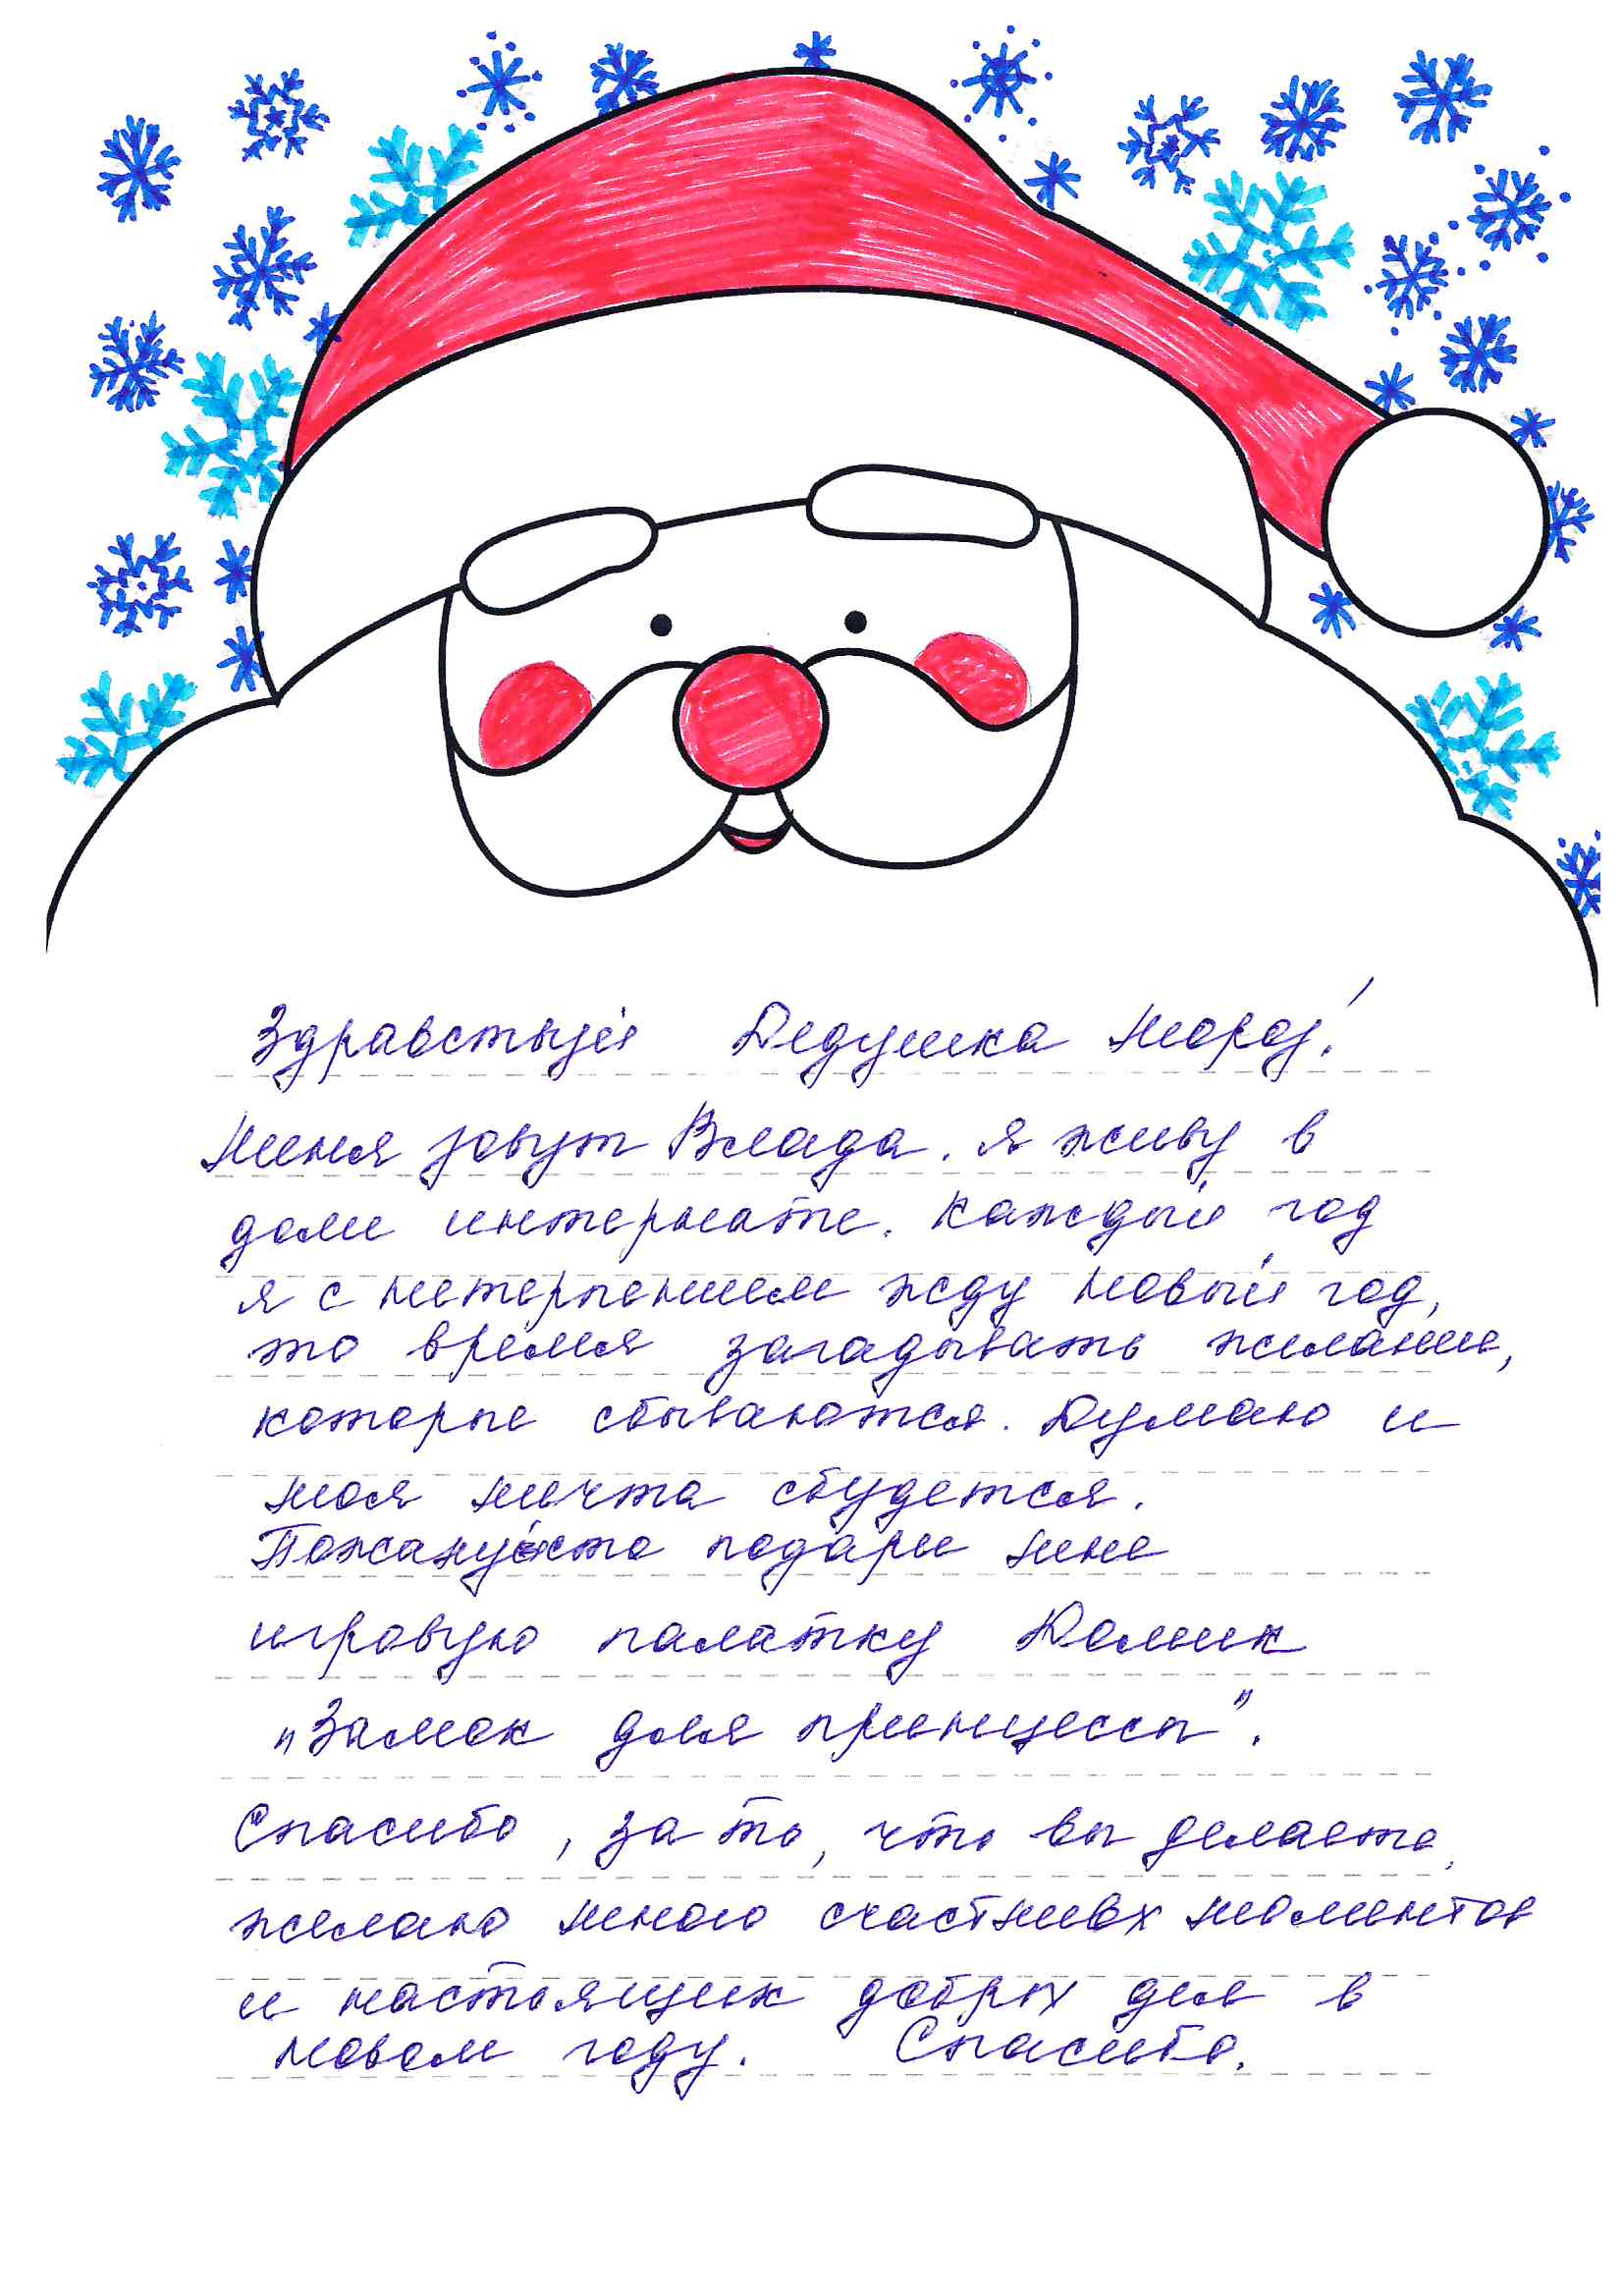 Здравствуй Дедушка Мороз!
Меня зовут Влада. Я живу в
доме интернате. Каждый год
я с нетерпением жду новый год,
это время загадывать желание,
которые сбываются. Думаю и
моя мечта сбудется.
Пожалуйста подари мне
игровую палатку Домик
"Замок для принцессы".
Спасибо, за то, что вы делаете,
желаю много счастливых моментов
и настоящих добрых дел в
новом году. Спасибо.